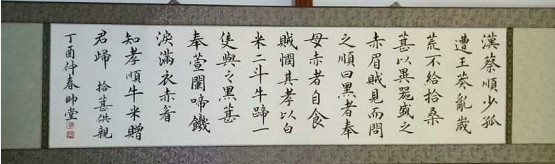 漢蔡順少孤
遭王莽亂歲
荒不給拾桑
葚以異器盛之
赤眉賊見而問
之順曰黑者奉
母赤者自食
賊憫其孝以白
米二斗牛蹄一
隻與之黑葚
奉萱闈啼饑
淚滿衣赤眉
知孝順牛米贈
君歸 拾葚供親
丁酉仲春帥堂